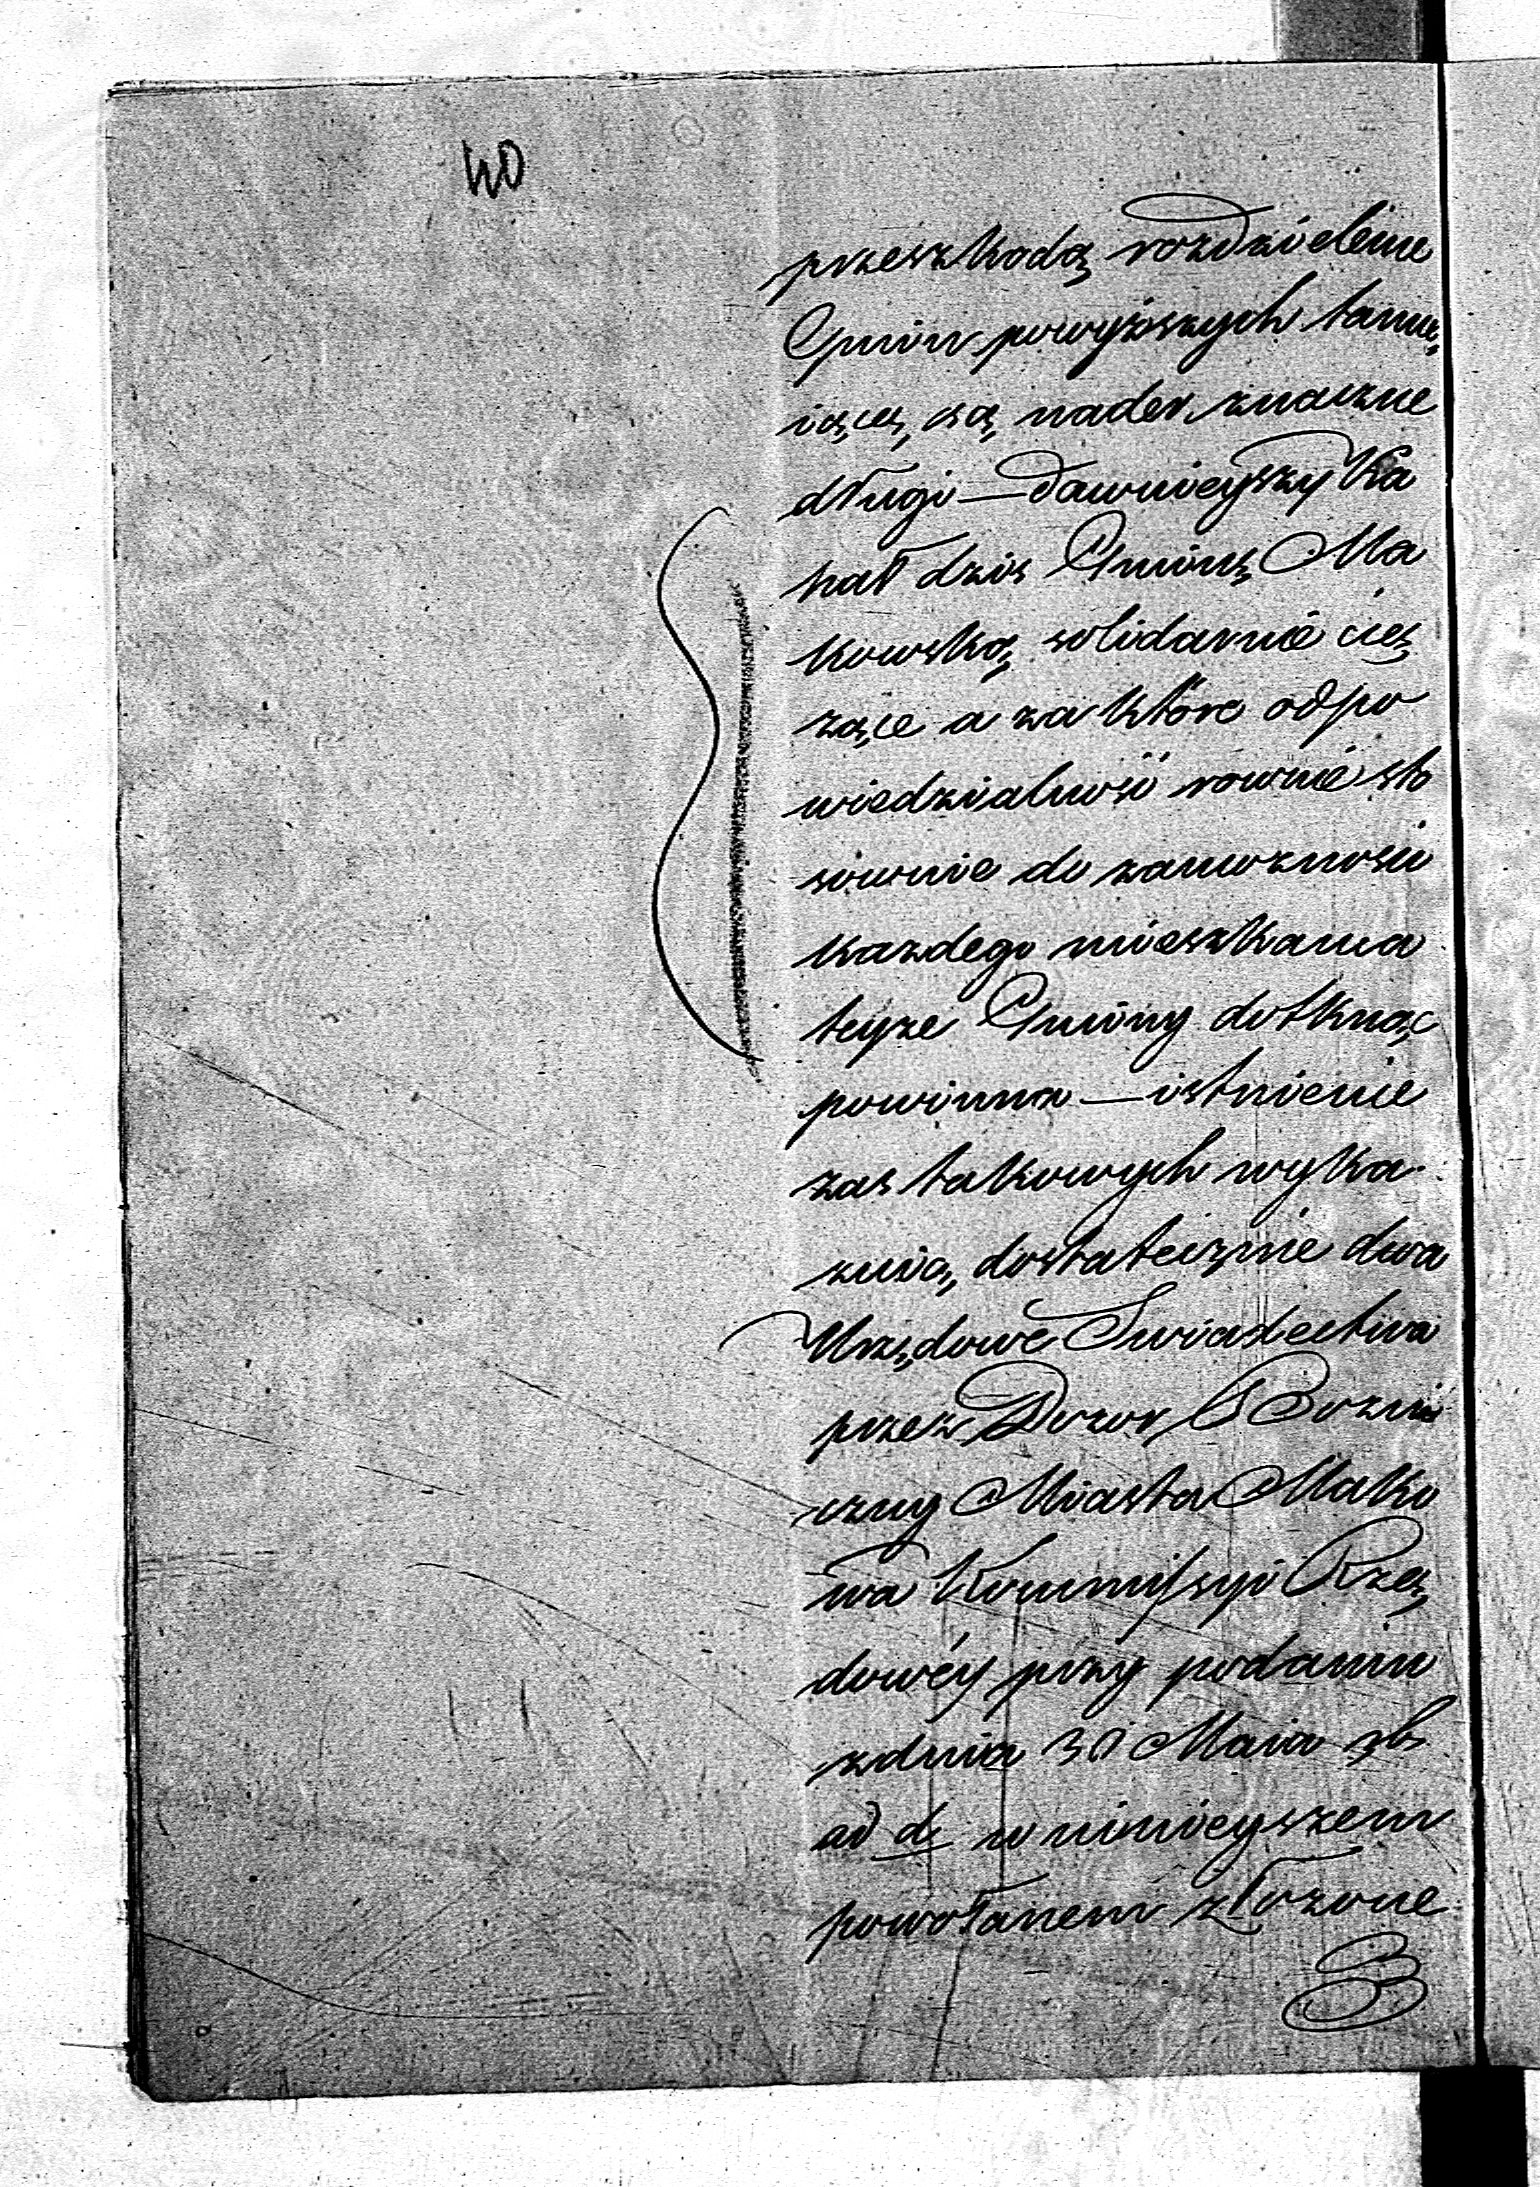 40
przeszkodą rozdzielenie
Gmin powyższych tamu,
iącą, są nader znaczne
długi — dawnieyszy Ka
hał dziś Gminę Ma
kowską solidarnie cię
żące a za które odpo
wiedzialność rownie sto
sownie do zamożności
kazdego mieszkańca
teyże Gminy dotknąć
powinna — istnienie
zas takowych wyka
zuią, dostatecznie dwa
Urzędowe Swiadectwa
przez Dozor Bozni
czny Miasta Mako
wa Kommissyi Rzą
dowéy przy podaniu
z dnia 30 Maia
ad d w ninieyszem
powołanem złożone